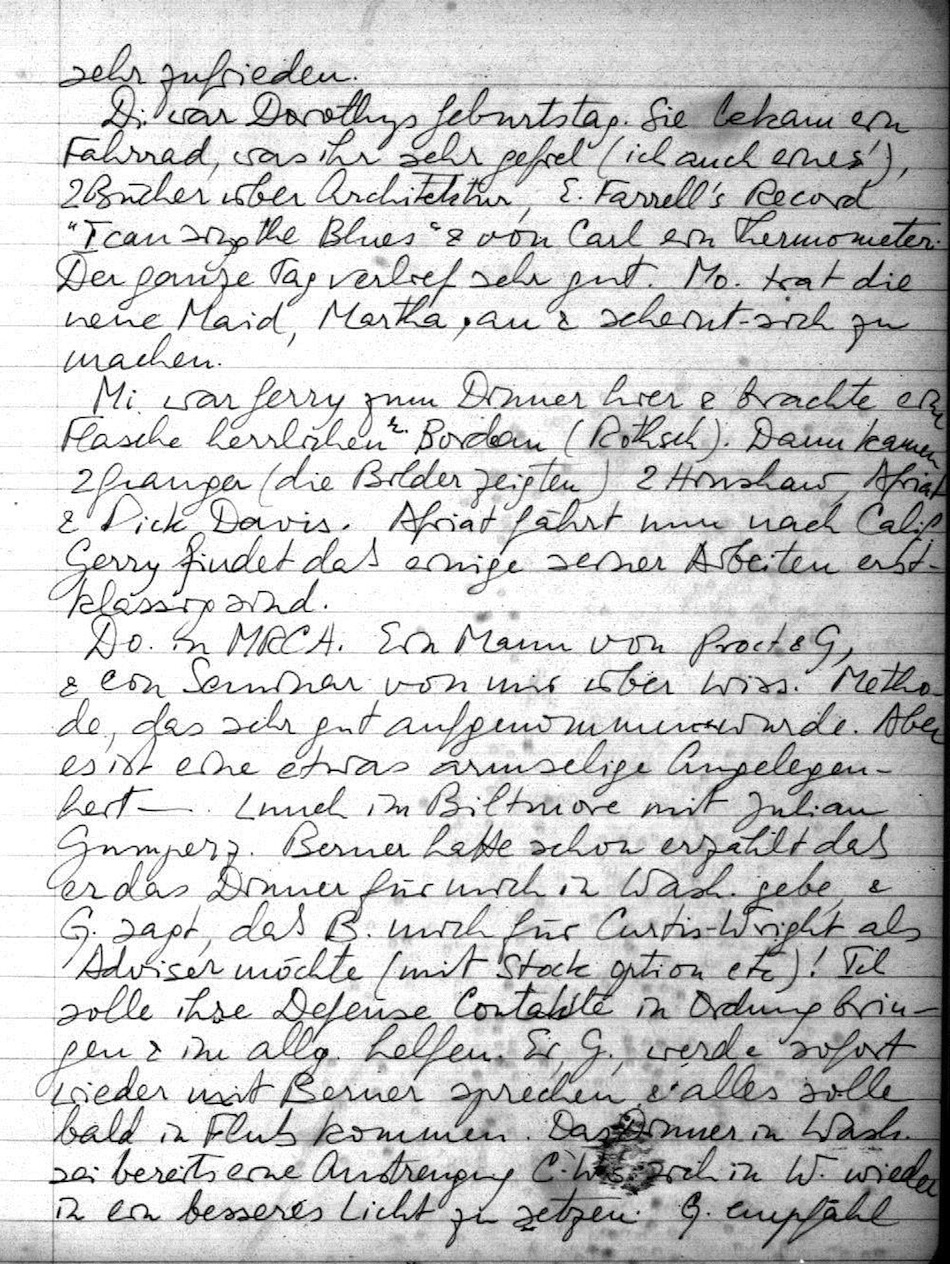 sehr zufrieden.
Di. war Dorothys Geburtstag. Sie bekam ein
Fahrrad, was ihr sehr gefiel (ich auch eines!),
2 Bücher über Architektur, E. Farrell's Record
"I can sing the Blues" & von Carl ein Thermometer.
Der ganze Tag verlief sehr gut. Mo. trat die
neue Maid, Martha, an & scheint sich zu
machen.
Mi. war Gerry zum Dinner hier & brachte eine
Flasche herrlichen Bordeau (Rothsch). Dann kamen
2 Granger (die Bilder zeigten) 2 Hinshaw, Afriat
& Dick Davis. Afriat fährt nun nach Calif.
Gerry findet daß einige seiner Arbeiten erst-
klassig sind.
Do. in MRCA. Ein Mann von Proct & G,
& ein Seminar von mir über wiss. Metho-
de, das sehr gut aufgenommen wurde. Aber
es ist eine etwas armselige Angelegen-
heit —. Lunch im Biltmore mit Julian
Gumperz. Berner hatte schon erzählt daß
er das Dinner für mich in Wash. gebe, &
G. sagt, daß B. mich für Curtis-Wright als
Adviser möchte (mit Stock option etc)!
solle ihre Defense Contakte in Ordnung brin-
gen & im allg. helfen. Er, G., werde sofort
wieder mit Berner sprechen & alles solle
bald in Fluß kommen. Das Dinner in Wash.
sei bereits eine Anstrengung C.W.s sich in W. wieder
in ein besseres Licht zu setzen. G. empfahl